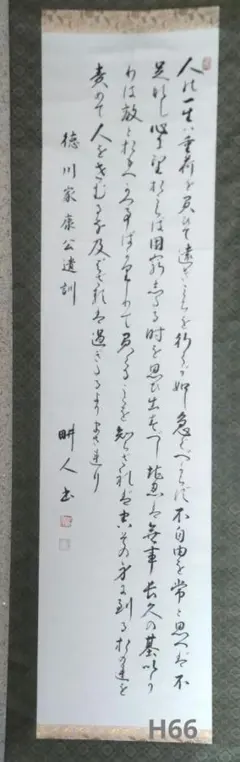 人の一生は重荷を負ひて遠き道を行くが如し急ぐべからず不自由を常と思へば不
足なし心に望おこらば困窮したる時を思ひ出すべし堪忍は無事長久の基いかり
は敵と思へ勝事ばかり知りて負くる事を知らざれば害その身に到るおのれを
責めて人をせむるな及ばざるは過ぎたるよりまされり
徳川家康公遺訓
畊人書
H66